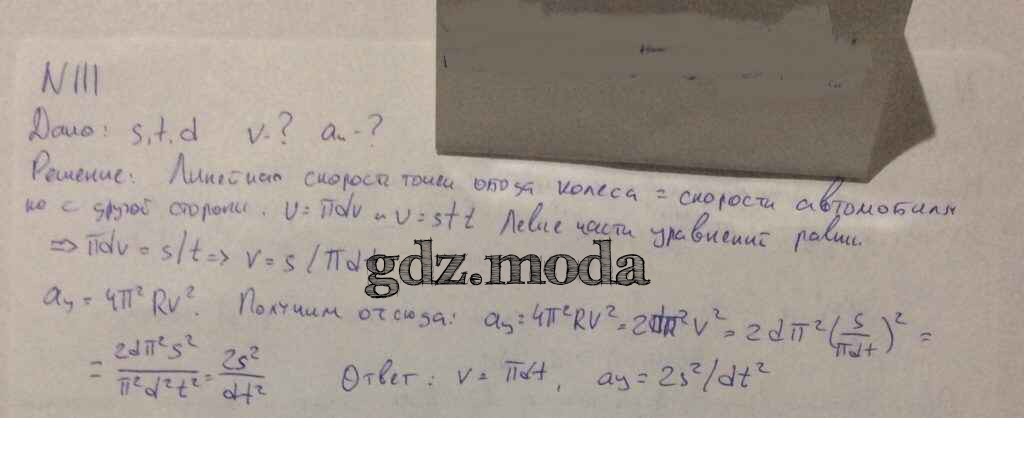 N III
Дано: s, t, d v-? aц-?
Решение: Линейная скорость точки обода колеса = скорости автомобиля
но с другой стороны. υ = πdν и υ = s/t Левые части уравнений равны.
=> πdν = s/t => ν = s / πdt
gdz.moda
aц = 4π²Rν². Получим отсюда: aц = 4π²Rν² = 2dπ²ν² = 2dπ²(s/πdt)² =
= 2dπ²s²/π²d²t² = 2s²/dt² Ответ: ν = πdt, aц = 2s²/dt²